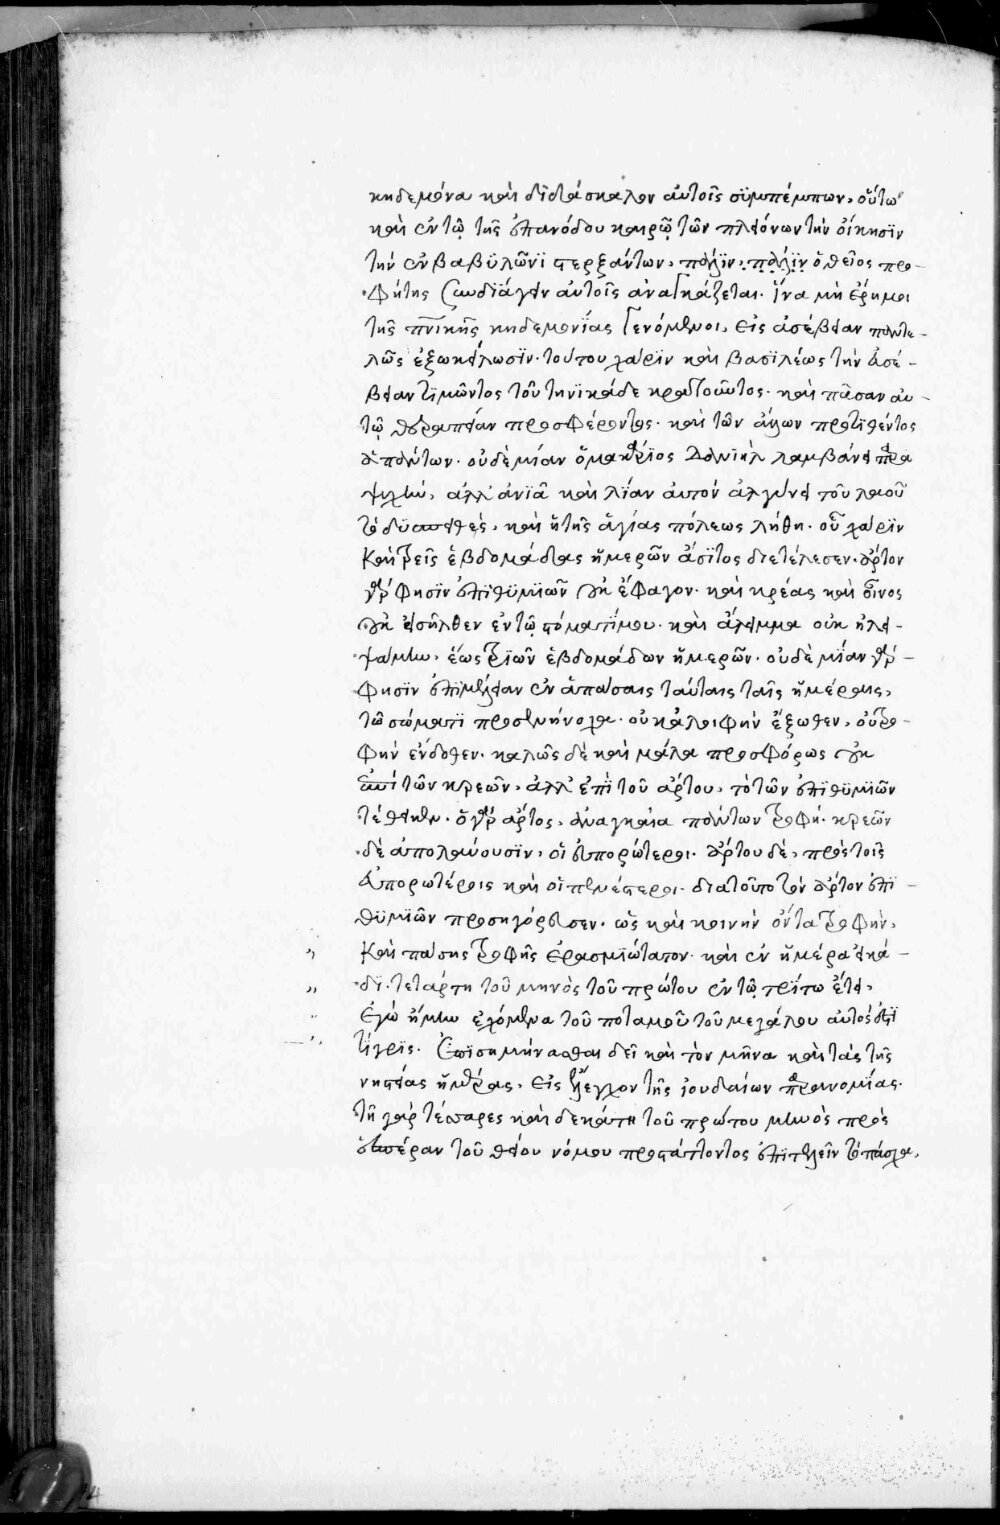 κηδεμόνα καὶ διδάσκαλον αὐτοῖς συμπέμπων, οὕτω
καὶ ἐν τῷ τῆς ἐπανόδου καιρῷ τῶν πλειόνων τὴν οἴκησϊν
τὴν ἐν βαβϋλῶνϊ στερξάντων, πάλϊν, πάλϊν ὁ θεῖος προ-
φήτης συνδϊάγειν αὐτοῖς ἀναγκάζεται. ἵνα μὴ ἔρημοι
τῆς πνϊκῆς κηδεμονίας γενόμενοι, εἰς ἀσέβειαν παντε-
λῶς ἐξωκείλωσϊν. τούτου χάρϊν καὶ βασϊλέως τὴν εὐσέ-
βειαν τϊμῶντος τοῦ τηνϊκάδε κρατοῦντος. καὶ πᾶσαν αὐ-
τῷ θεραπείαν προσφέροντος. καὶ τῶν ἄλλων προτϊθέντος
ἁπάντων. οὐδεμίαν ὁ μακάρϊος Δανϊὴλ λαμβάνει παρα
ψυχὴν, ἀλλ' ἀνϊᾶ καὶ λίαν αὐτὸν ἀλγύνει τοῦ λαοῦ
τὸ δϋσπειθὲς, καὶ ἡ τῆς ἁγίας πόλεως λήθη. οὗ χάρϊν
καὶ τρεῖς ἑβδομάδας ἡμερῶν ἄσϊτος διετέλεσεν. ἄρτον
γάρ φησϊν ἐπϊθϋμϊῶν οὐκ ἔφαγον. καὶ κρέας καὶ οἶνος
οὐκ εἰσῆλθεν ἐν τῷ στόματί μου. καὶ ἄλειμμα οὐκ ἠλει-
ψάμην, ἕως τρϊῶν ἑβδομάδων ἡμερῶν. οὐδεμίαν γάρ
φησϊν ἐπϊμέλειαν ἐν ἁπάσαις ταύταις ταῖς ἡμέραις,
τῷ σώματϊ προσενήνοχα. οὐκ ἀλοιφὴν ἔξωθεν, οὐ τρο-
φὴν ἔνδοθεν. καλῶς δὲ καὶ μάλα προσφόρως οὐκ
ἐπὶ τῶν κρεῶν, ἀλλ' ἐπὶ τοῦ ἄρτου, τὸ τῶν ἐπϊθϋμϊῶν
τέθεικεν. ὁ γὰρ ἄρτος, ἀναγκαία πάντων τροφή. κρεῶν
δὲ ἀπολαύουσϊν, οἱ εὐπορώτεροι. ἄρτου δὲ, πρὸς τοῖς
εὐπορωτέροις καὶ οἱ πενέστεροι. διατοῦτο τὸν ἄρτον ἐπϊ-
θϋμϊῶν προσηγόρευσεν. ὡς καὶ κοινὴν ὄντα τροφὴν,
καὶ πάσης τροφῆς ἐρασμϊώτατον. καὶ ἐν ἡμέρα εἰκά-
δϊ. τετάρτη τοῦ μηνὸς τοῦ πρώτου ἐν τῷ τρίτω ἔτει,
ἐγὼ ἤμην ἐχόμενα τοῦ ποταμοῦ τοῦ μεγάλου αὐτός ἐστϊ
τίγρϊς. ἐπισημήνασθαι δεῖ καὶ τὸν μῆνα καὶ τὰς τῆς
νηστείας ἡμέρας, εἰς ἔλεγχον τῆς ἰουδαίων παρανομίας.
τῆ γὰρ τέσσαρες καὶ δεκάτη τοῦ πρώτου μηνὸς πρὸς
ἑσπέραν τοῦ θείου νόμου προστάττοντος ἐπϊτελεῖν τὸ πάσχα,